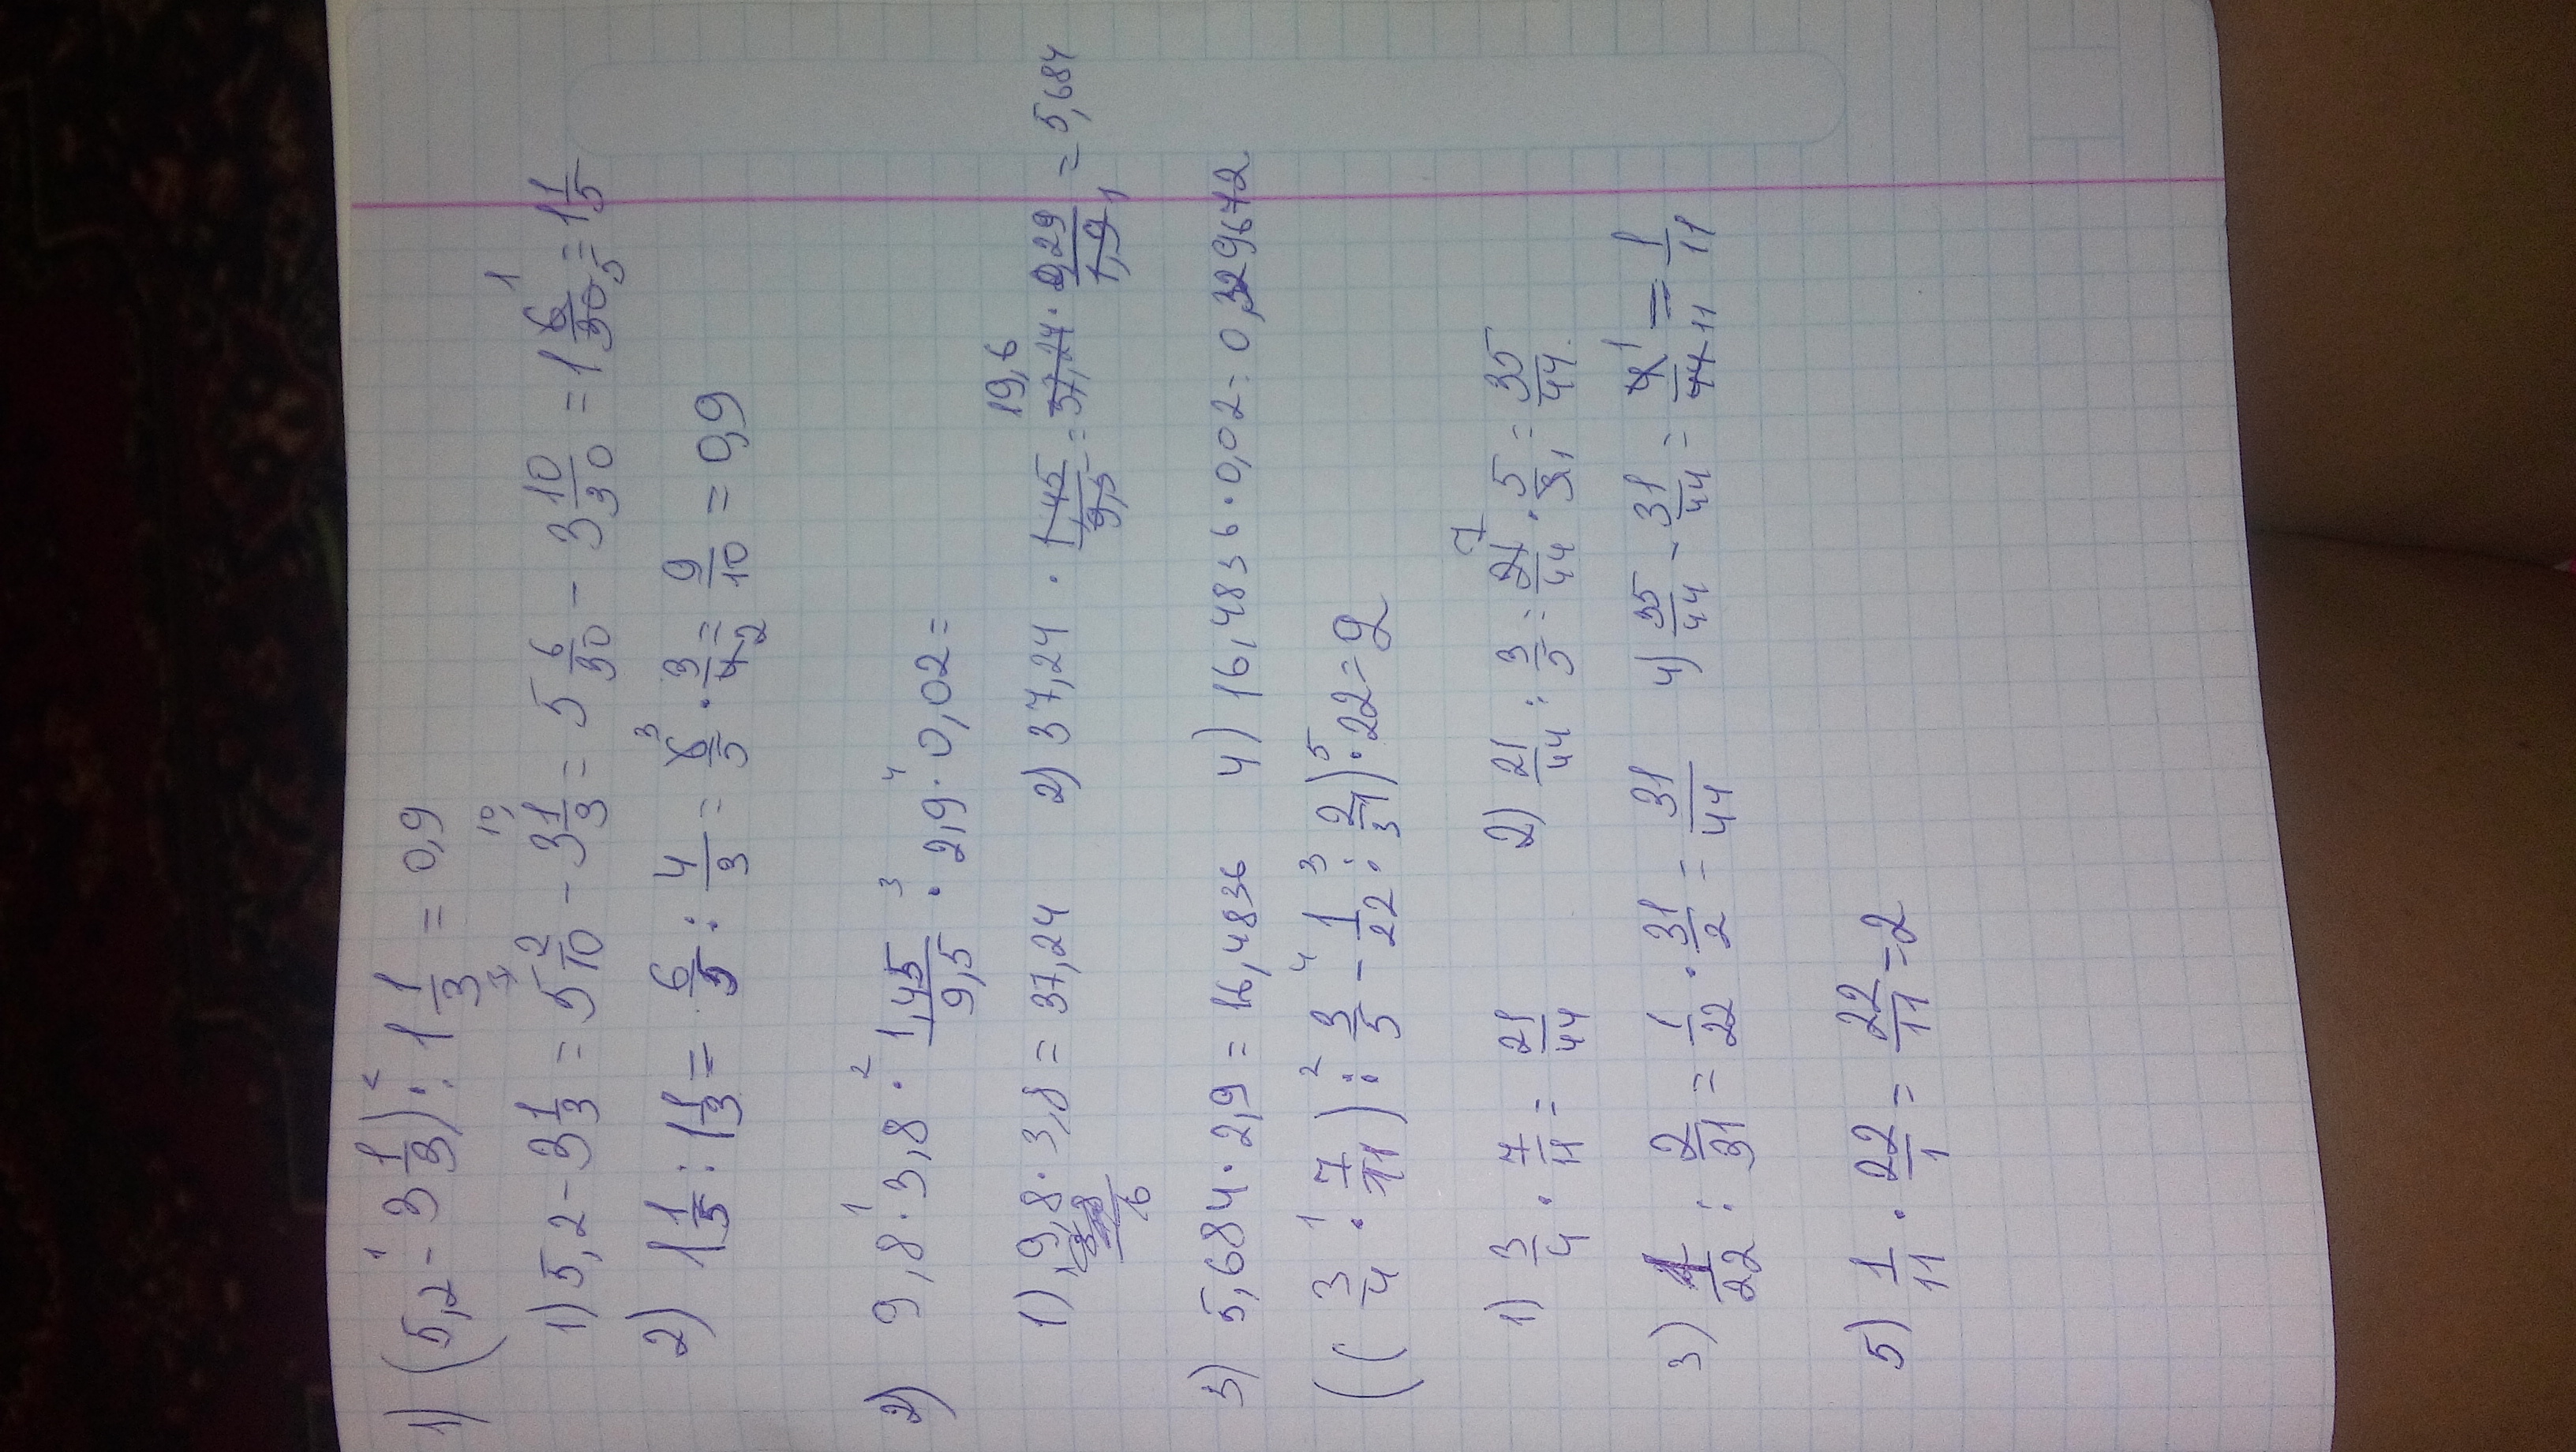 1) (5,2 - 3 1/3) : 1 1/3 = 0,9
1) 5,2 - 3 1/3 = 5 2/10 - 3 1/3 = 5 6/30 - 3 10/30 = 1 6/30 = 1 1/5
2) 1 1/5 : 1 1/3 = 6/5 : 4/3 = 6/5 · 3/4 = 9/10 = 0,9
2) 9,8 · 3,8 · 1,45/9,5 · 2,9 · 0,02 =
1) 9,8 · 3,8 = 37,24 2) 37,24 · 1,45/9,5 = 37,24 · 0,29/1,9 = 5,684
3) 5,684 · 2,9 = 16,4836 4) 16,4836 · 0,02 = 0,329672
(3/4 · 7/11) : 3/5 - 1/22 : 2/31) · 22 = 2
1) 3/4 · 7/11 = 21/44 2) 21/44 : 3/5 = 21/44 · 5/3 = 35/44
3) 1/22 : 2/31 = 1/22 · 31/2 = 31/44 4) 35/44 - 31/44 = 4/44 = 1/11
5) 1/11 · 22/1 = 22/11 = 2